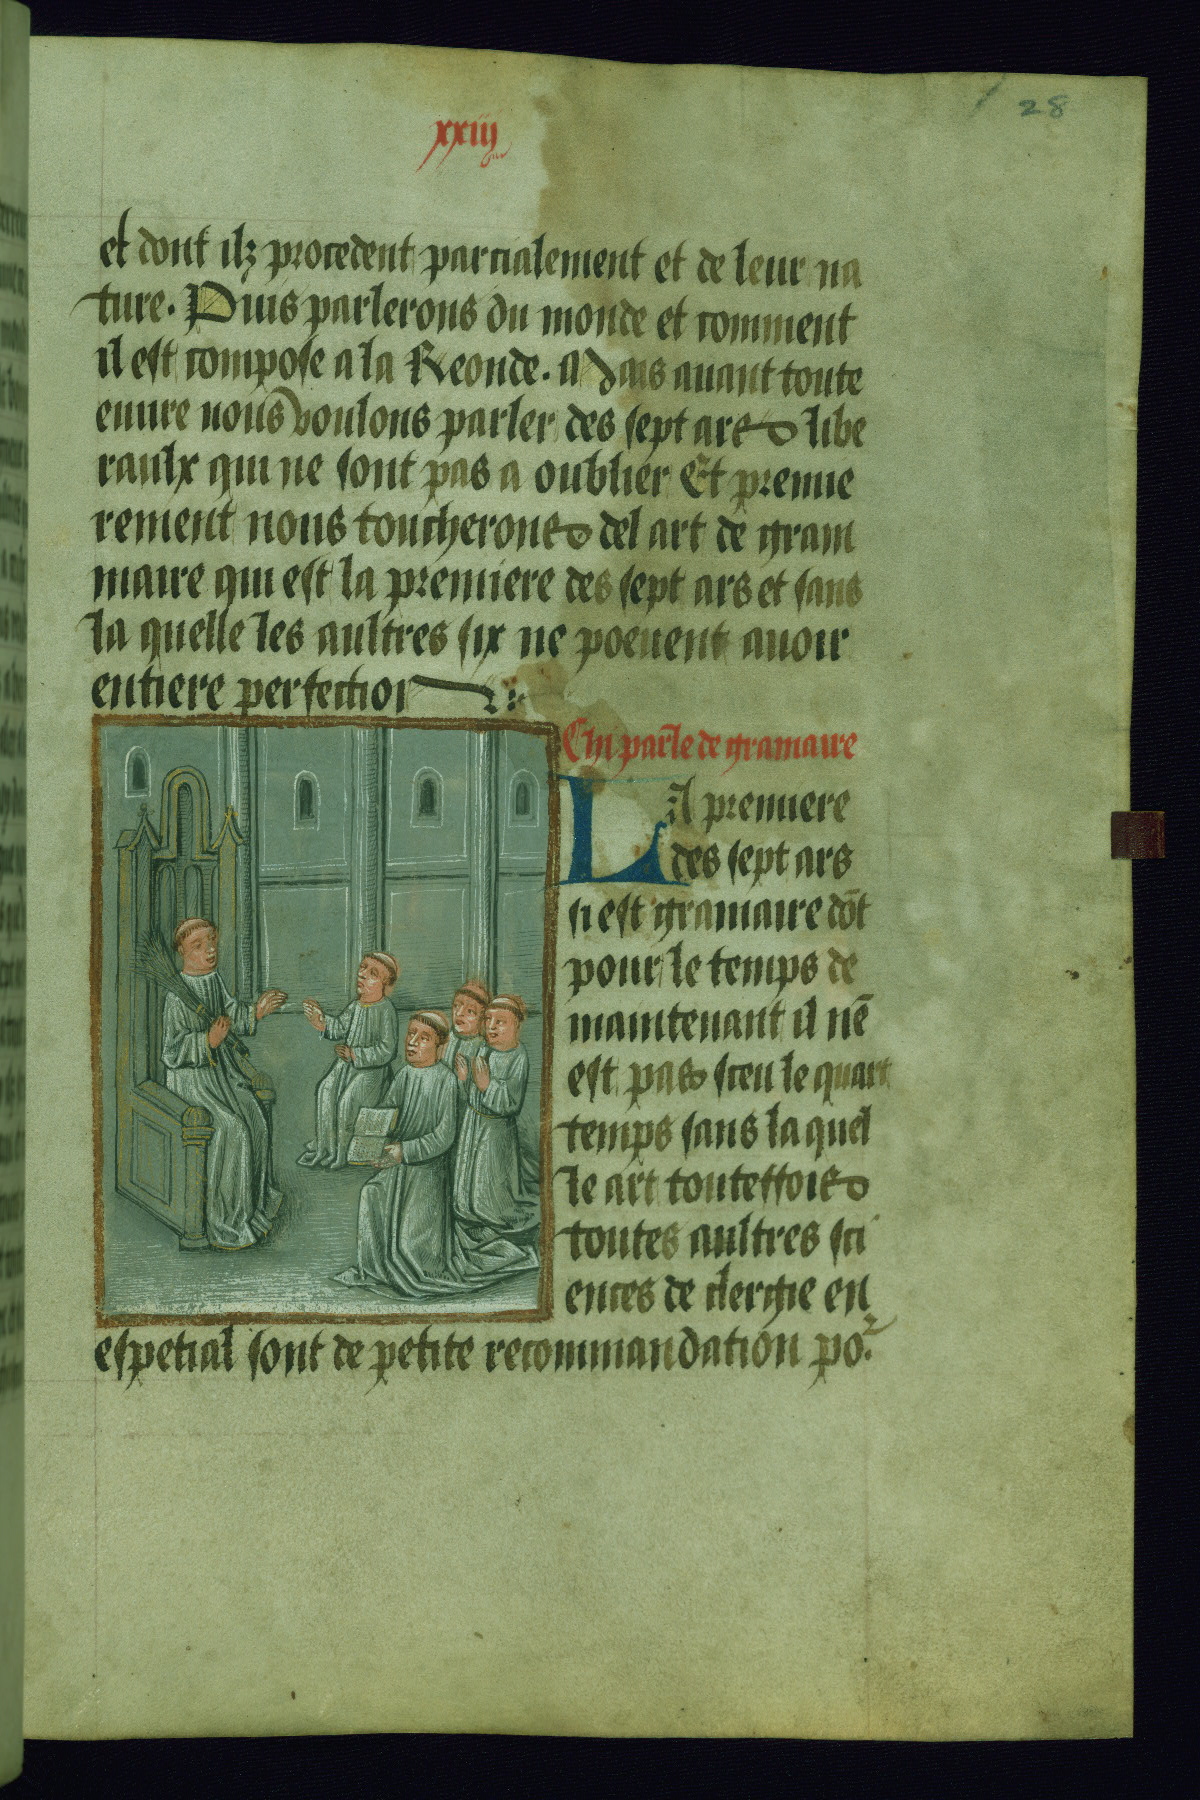 28
xxiiij
et dont ilz procedent parcialement et de leur na
ture. Puis parlerons du monde et comment
il est compose a la Reonde. Mais auant toute
euure nous voulons parler des sept ars libe
raulx qui ne sont pas a oublier Et premie
rement nous toucherons del art de gram
maire qui est la premiere des sept ars et sans
la quelle les aultres six ne poeuent auoir
entiere perfection
Chi parle de gramaire
La premiere
des sept ars
si est gramaire dōt
pour le temps de
maintenant il nē
est pas sceu le quart
temps sans la quel
le art touteffois
toutes aultres sci
ences de clergie en
especial sont de petite recommandation po2